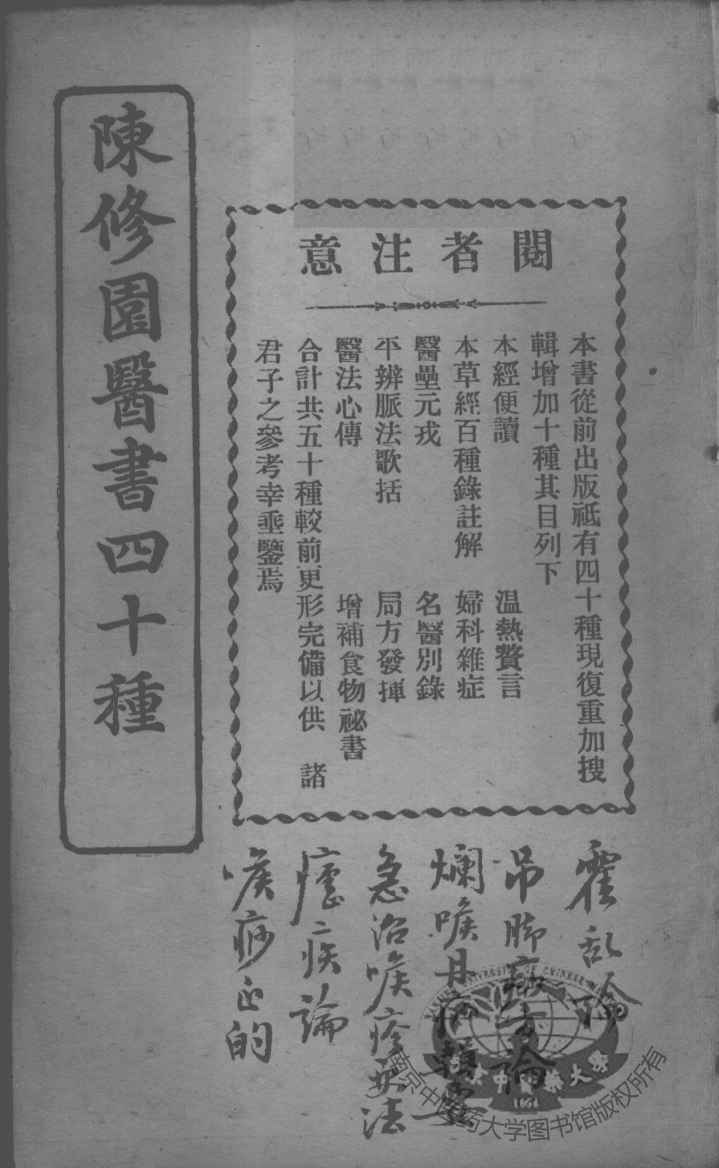 陳修園醫書四十種
閱者注意
本書從前出版祗有四十種現復重加搜
輯增加十種其目列下
本經便讀　溫熱贅言
本草經百種錄註解　婦科雜症
醫壘元戎　名醫別錄
平辨脈法歌括　局方發揮
醫法心傳　增補食物祕書
合計共五十種較前更形完備以供　諸
君子之參考幸垂鑒焉
霍乱論
吊脚痧方論
爛喉丹痧輯要
急治喉疹要法
瘧疾論
喉痧正的
南京中医药大学图书馆版权所有
1954